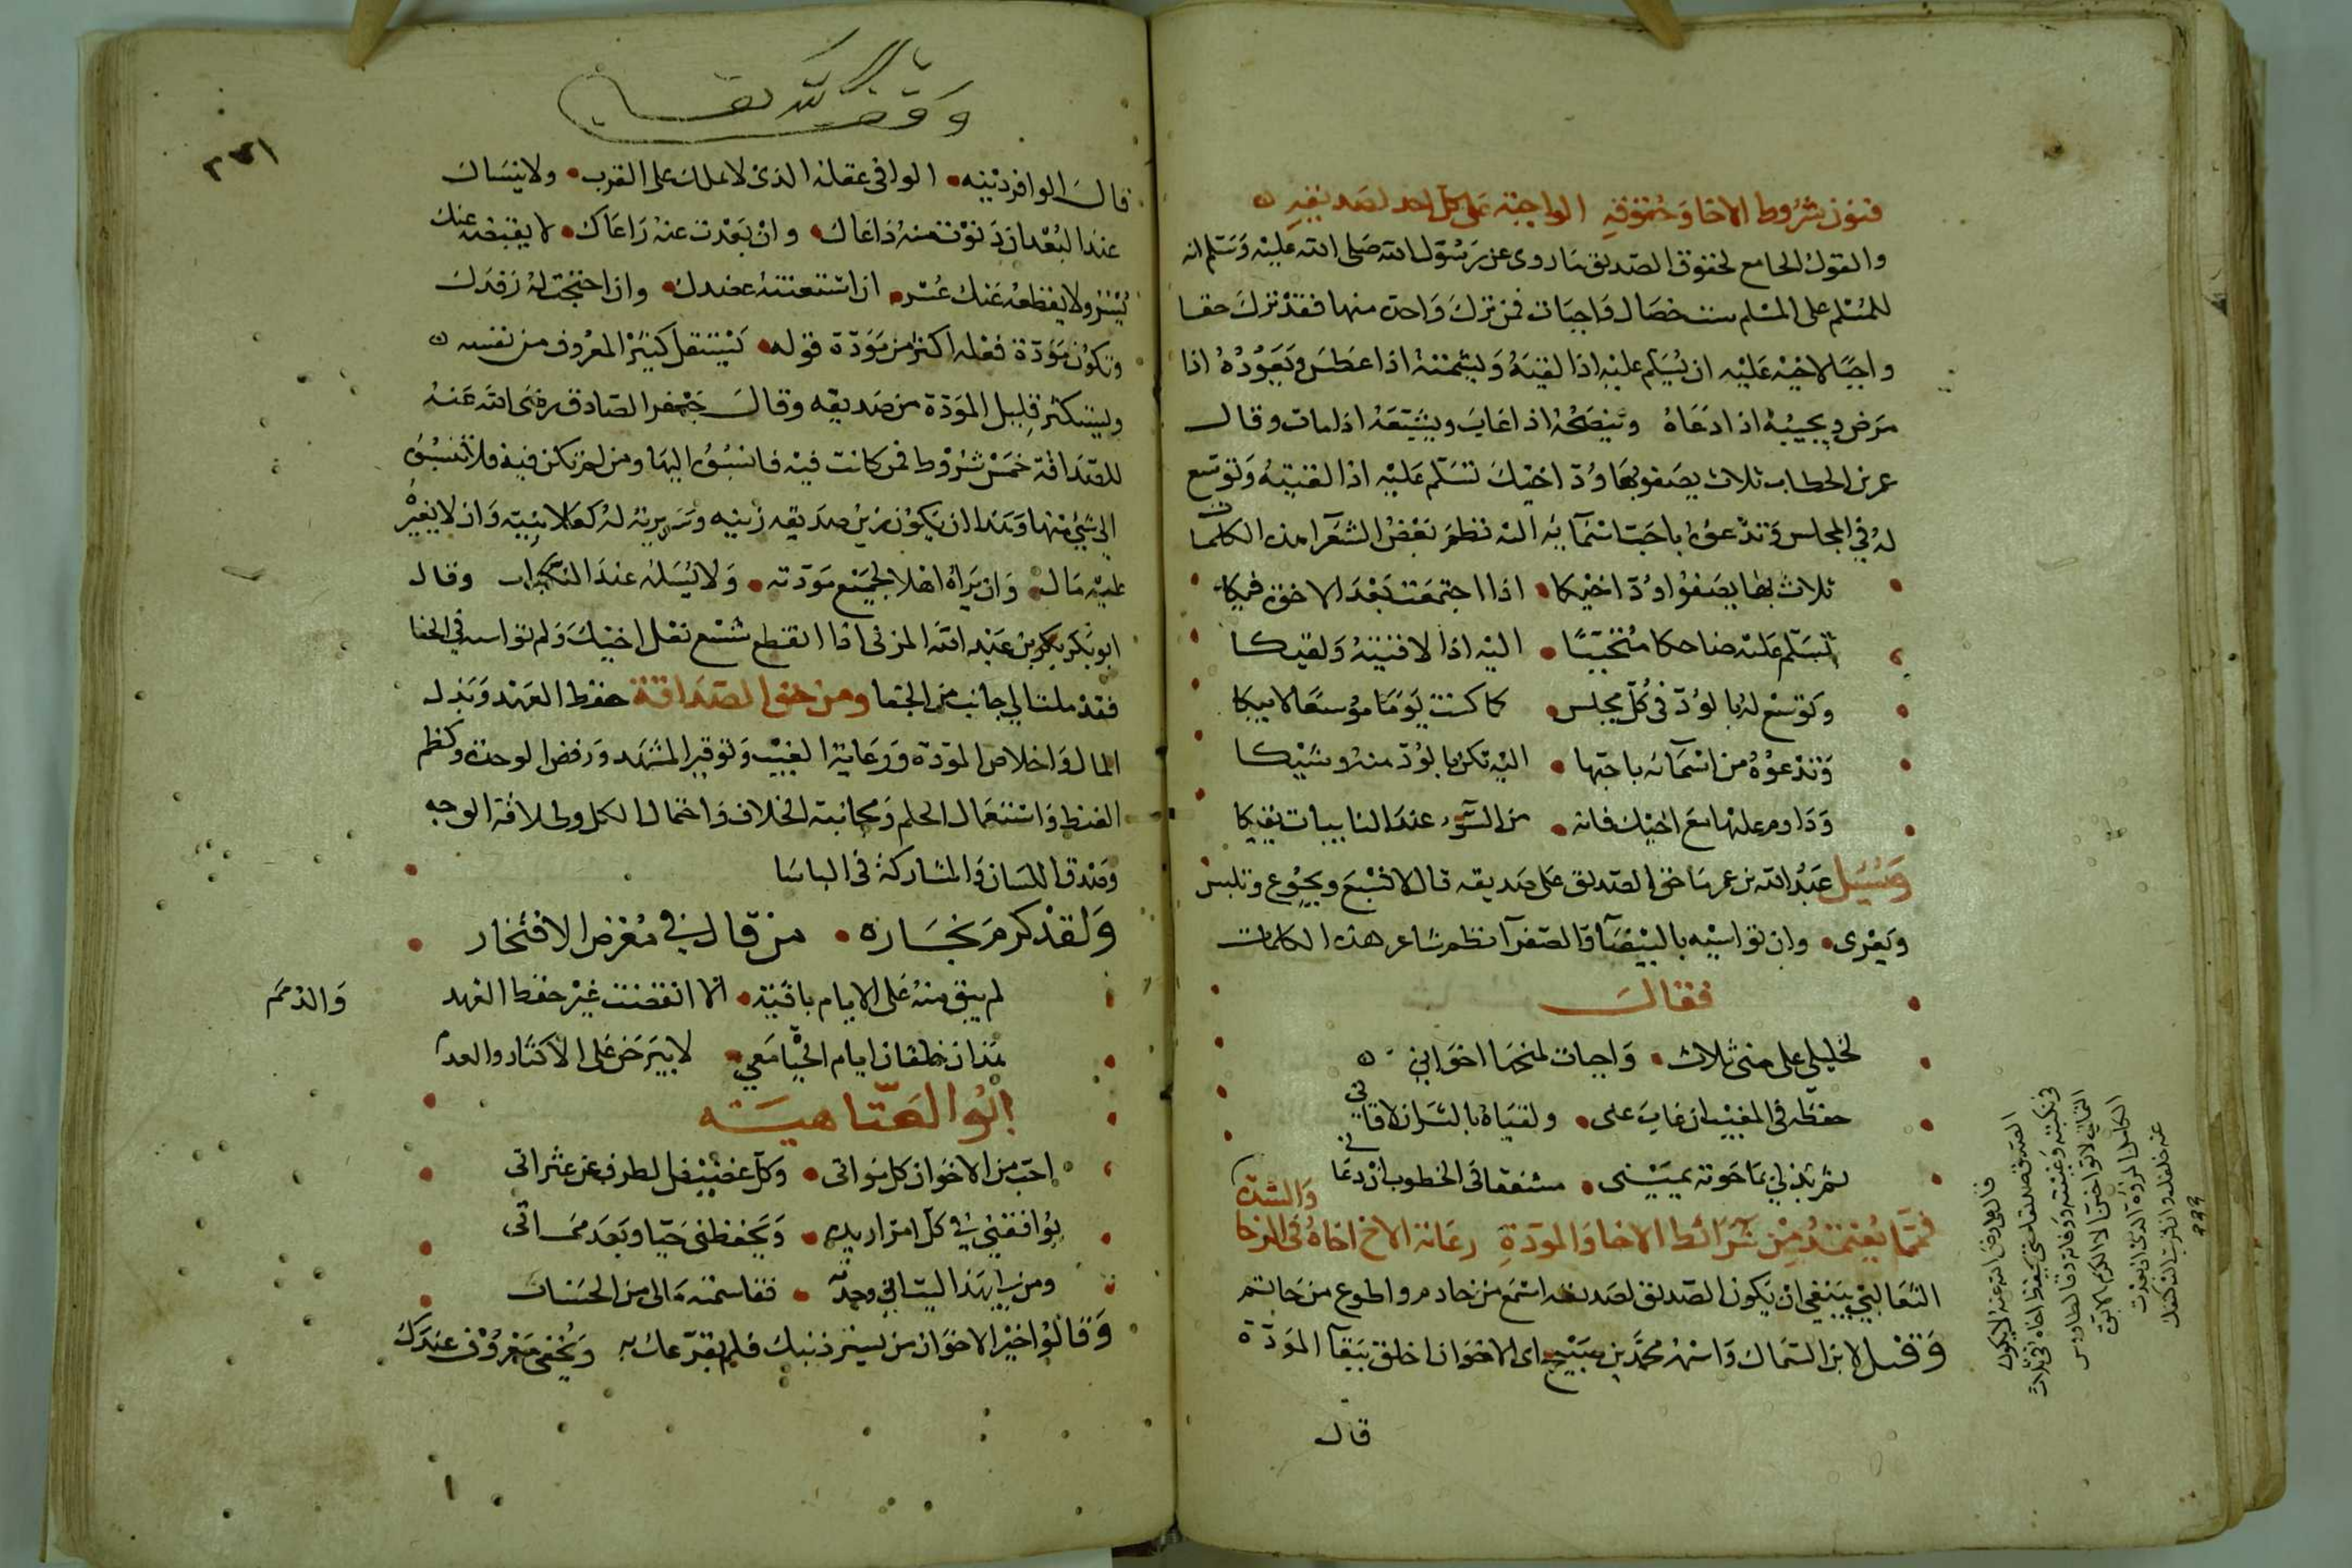 فنون شروط الاخا وحقوقه الواجبة على كل احد لصديقه
والقول الجامع لحقوق الصديق ما روى عن رسول الله صلى الله عليه وسلم انه
للمسلم على المسلم ست خصال واجبات فمن ترك واحدة منها فقد ترك حقا
واجبًا لاخيه عليه ان يسلم عليه اذا لقيه ويشمته اذا عطس ويعوده اذا
مرض ويجيبه اذا دعاه وينصحه اذا غاب ويشيعه اذا مات وقال
عمر بن الخطاب ثلاث يصفو بها ودّ اخيك تسلم عليه اذا لقيته وتوسع
له في المجلس وتدعوه باحب اسمائه اليه نظم بعض الشعرآ هذه الكلمات
ثلاث بها يصفوا ودّ اخيكا اذا اجتمعت بعد الاخوة فيكا
تسلم عليه ضاحكا متحببًا اليه اذا لاقيته ولقيكا
وتوسع له بالودّ في كلّ مجلس كما كنت يومًا موسعًا لابيكا
وتدعوه من اسمآئه باحبّها اليه تكن بالودّ منه وشيكا
وداوم عليها مع اخيك فانه من السّوء عند النايبات يقيكا
وسُئِل عبد الله بن عمر ما حق الصديق على صديقه قال لا تشبع ويجوع وتلبس
ويعرى وان تواسيه بالبيضآ والصفرآ نظم شاعر هذه الكلمات
فقال
لخليلي على منى ثلاث واجبات امنحها اخواني
حفظه في المغيب ان غاب عني ولقياه بالبشر ان لاقاني
ثم بذلي بما حوته يميني مشفقا في الخطوب ان دعاني
فمّما يُعتمد من شرائط الاخا والمودّة رعاية الاخ اخاهُ في الرخا والشدّة
الثعالبي ينبغي ان يكون الصديق لصديقه اسمع من خادم واطوع من خاتم
وقيل لابن السماك واسمه محمد بن صبيح اى الاخوان اخلق ببقآ المودّة
قال
وقف لله تعالى
قال الوافر دينه الوافى عقله الذي لا يملك على القرب ولا ينساك
عند البُعْد ان دنوت منه داعاك وان بعدت عنه راعاك لا يقبضه عنك
يُسْر ولا يقطعه عنك عُسْر ان استعنته عضدك وان احتجت له رفدك
وتكون مودّة فعله اكثر من مودّة قوله يستقل كثير المعروف من نفسه
ويستكثر قليل المودّة من صديقه وقال جعفر الصادق رضى الله عنه
للصداقة خمس شروط فمن كانت فيه فانسبُوُ اليها ومن لم تكن فيه فلا تنسبُوُ
الى شيء منها وهذا ان يكون زين صديقه زينه وسريرته له كعلانيته وان لا يغيره
عليه مال وان يراه اهلا لجميع مودّته ولا يسلمه عند النكبات وقال
ابو بكر بكر بن عبد الله المزنى اذا انقطع شسع نعل اخيك ولم تواسه في الحفا
فقد ملت الى جانب من الجفا ومن حق الصداقة حفظ العهد وبذل
المال واخلاص المودّة ورعاية الغيب وتوقير المشهد ورفض الوحدة وكظم
الغيظ واستعمال الحلم ومجانبة الخلاف واحتمال الكل وطلاقة الوجه
وصدق اللسان والمشاركة في الباسا
ولقد كرم نجاره من قال في معرض الافتخار
لم يبق منه على الايام باقية الا انقضت غير حفظ العهد والذمم
هذان خلقان ايام الحيا معي
ابُو العتاهيته
احبّ من الاخوان كل مواتى وكلّ غضيض الطرف عن عثراتى
يوافقني في كلّ امر اريده ويحفظنى حيّا وبعد مماتى
ومن لي بهذا ليت انى وجدته فقاسمته مالى من الحسنات
وقالوا خير الاخوان من يستر ذنبك فلم يقرّعك به ويُخفى معروفه عندك